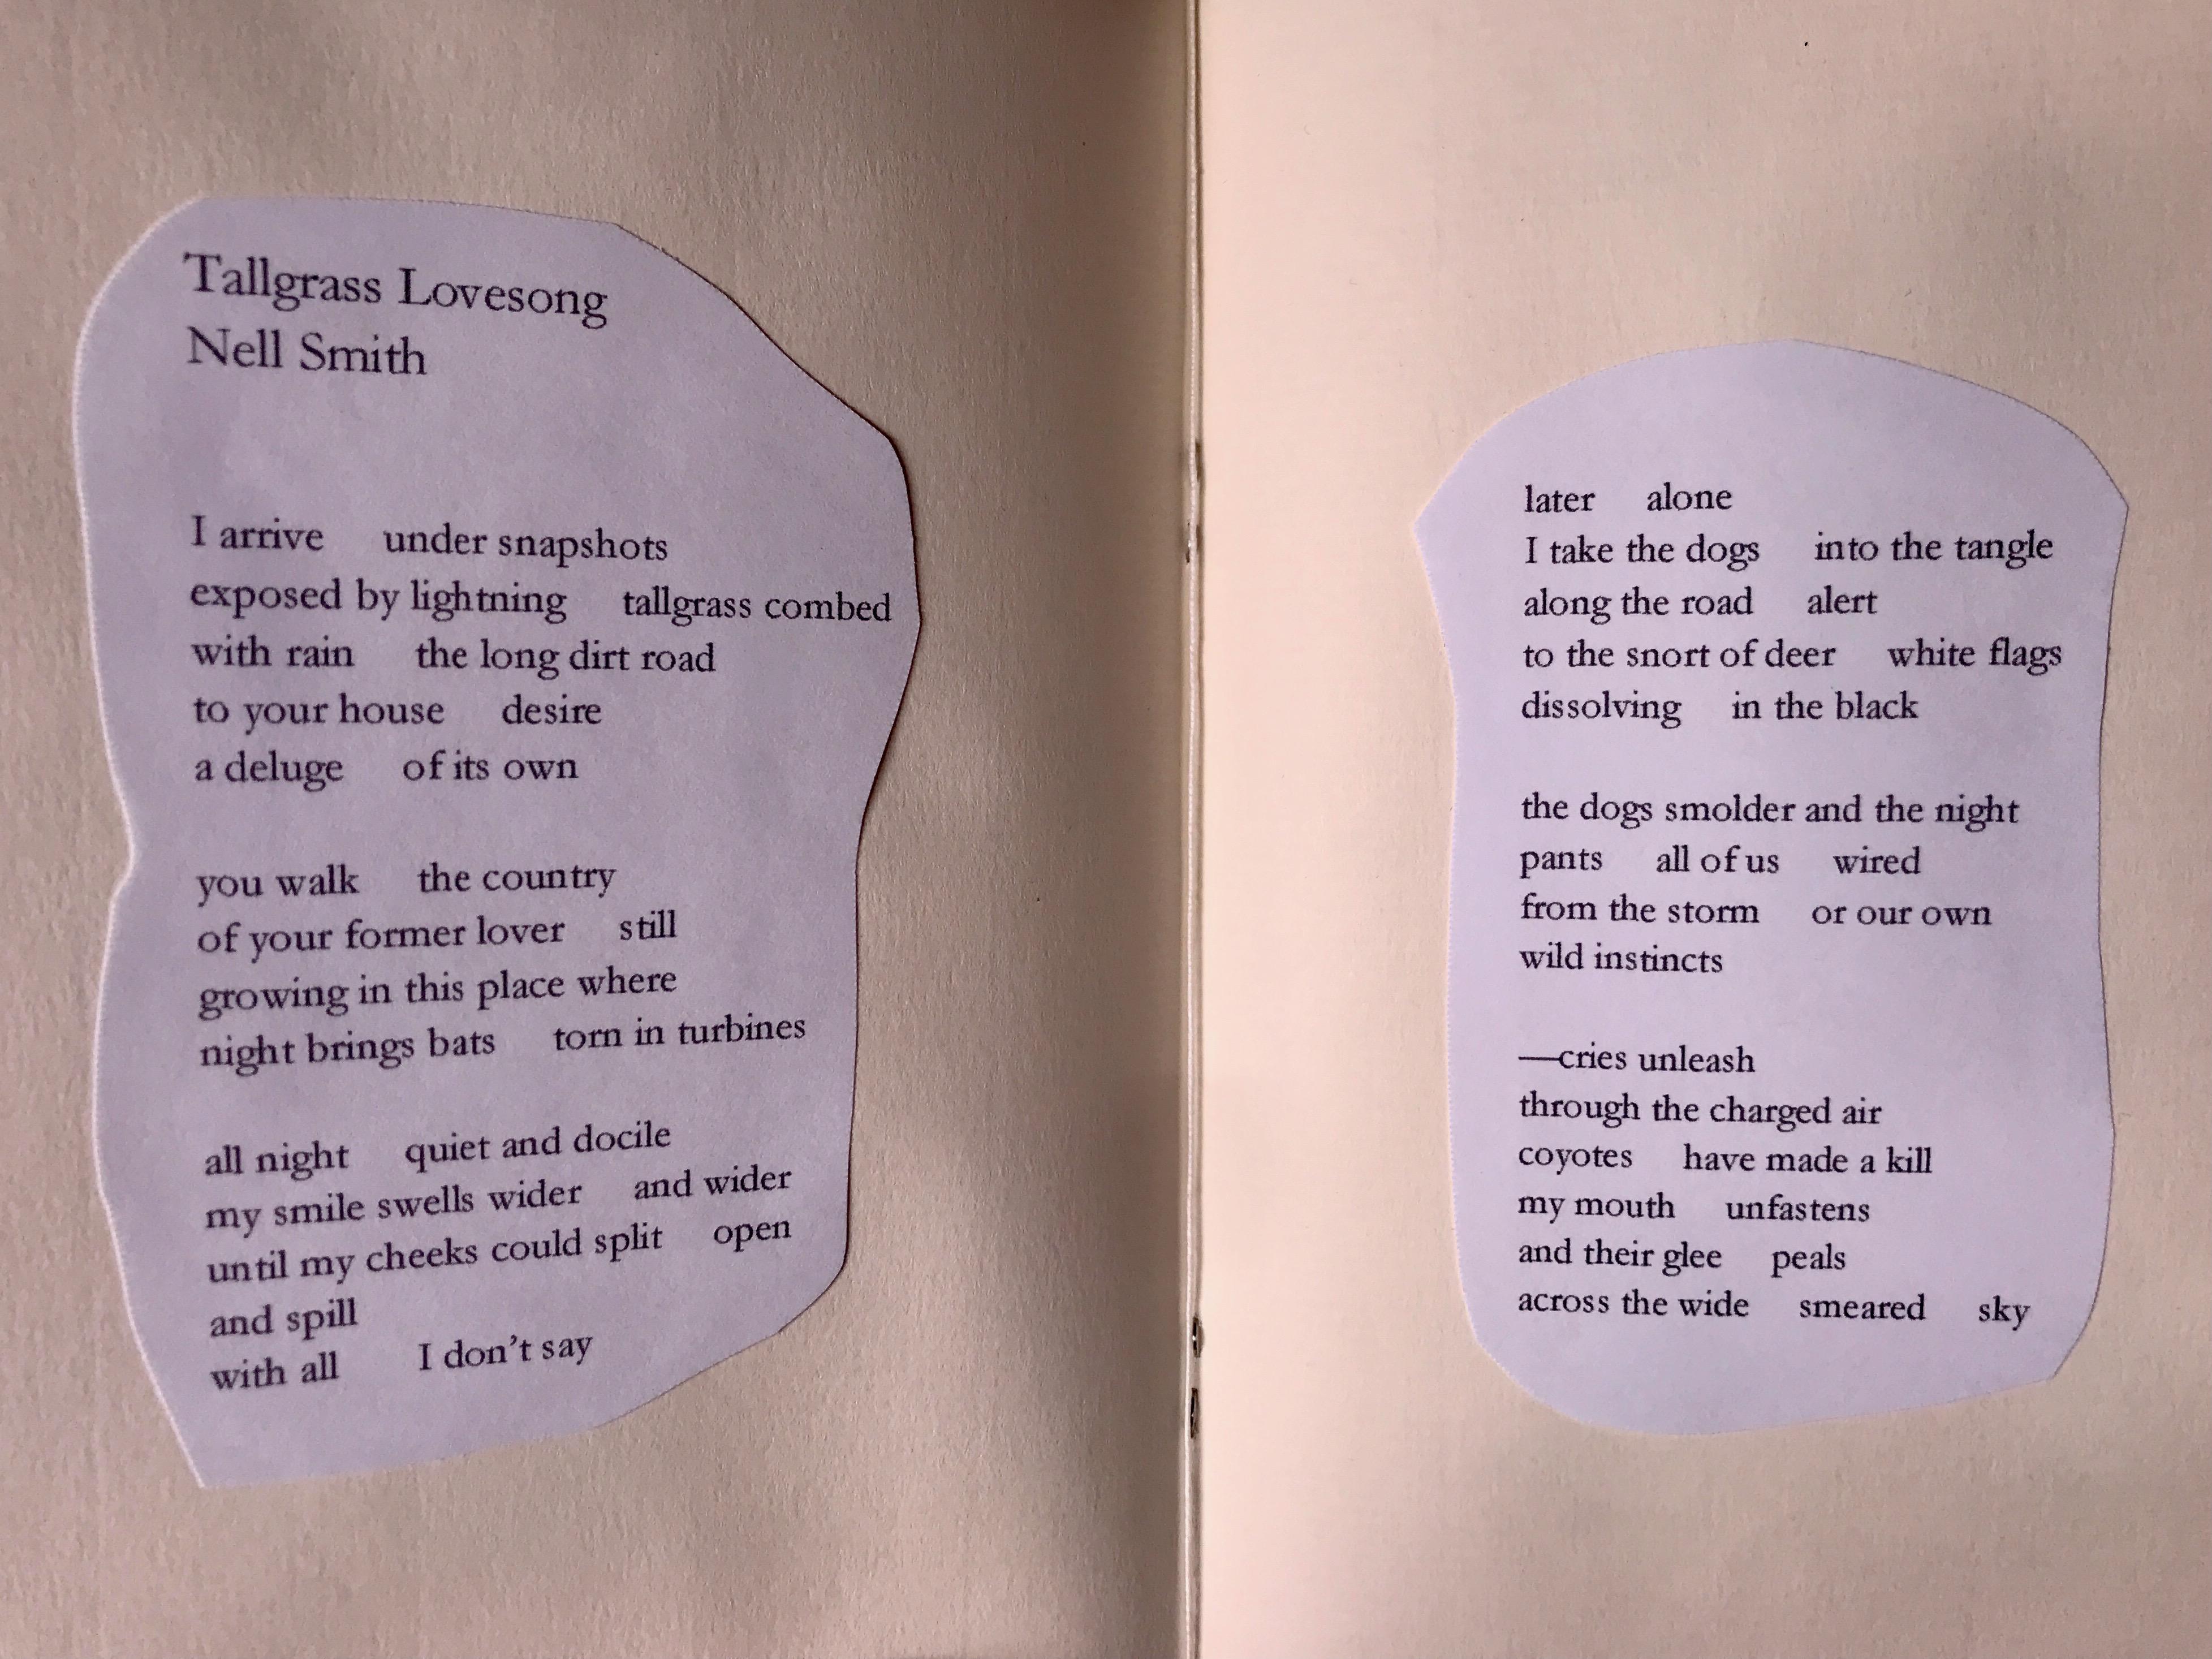 Tallgrass Lovesong
Nell Smith
I arrive under snapshots
exposed by lightning tallgrass combed
with rain the long dirt road
to your house desire
a deluge of its own
you walk the country
of your former lover still
growing in this place where
night brings bats torn in turbines
all night quiet and docile
my smile swells wider and wider
until my cheeks could split open
and spill
with all I don't say
later alone
I take the dogs into the tangle
along the road alert
to the snort of deer white flags
dissolving in the black
the dogs smolder and the night
pants all of us wired
from the storm or our own
wild instincts
—cries unleash
through the charged air
coyotes have made a kill
my mouth unfastens
and their glee peals
across the wide smeared sky